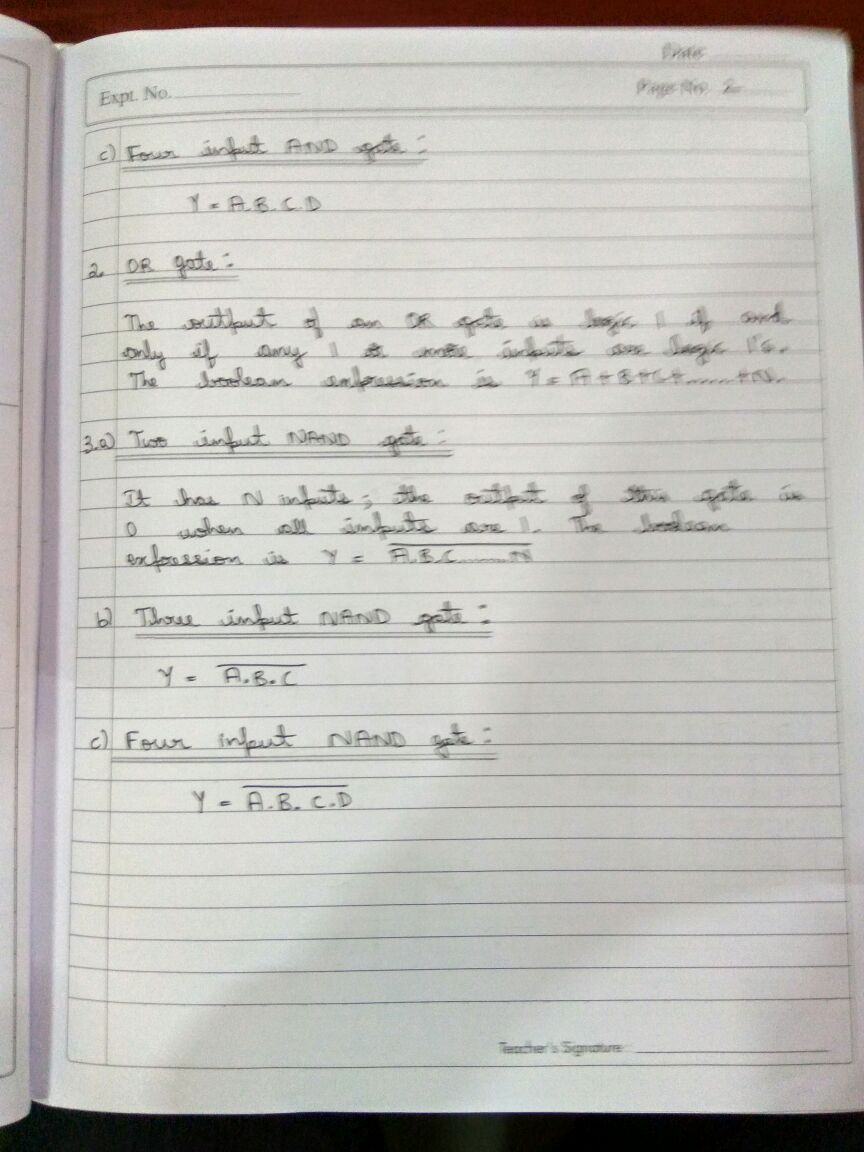 Date
Expt. No.
Page No. 2
c) Four input AND gate :
Y = A.B.C.D
2. OR gate :
The output of an OR gate is logic 1 if and
only if any 1 or more inputs are logic 1's.
The boolean expression is Y = A+B+C+.......+N.
3.a) Two input NAND gate :
It has N inputs ; the output of this gate is
0 when all inputs are 1. The boolean
expression is Y = A̅.̅B̅.̅C̅.̅.̅.̅.̅.̅.̅.̅N̅
b) Three input NAND gate :
Y = A̅.̅B̅.̅C̅
c) Four input NAND gate :
Y = A̅.̅B̅.̅C̅.̅D̅
Teacher's Signature